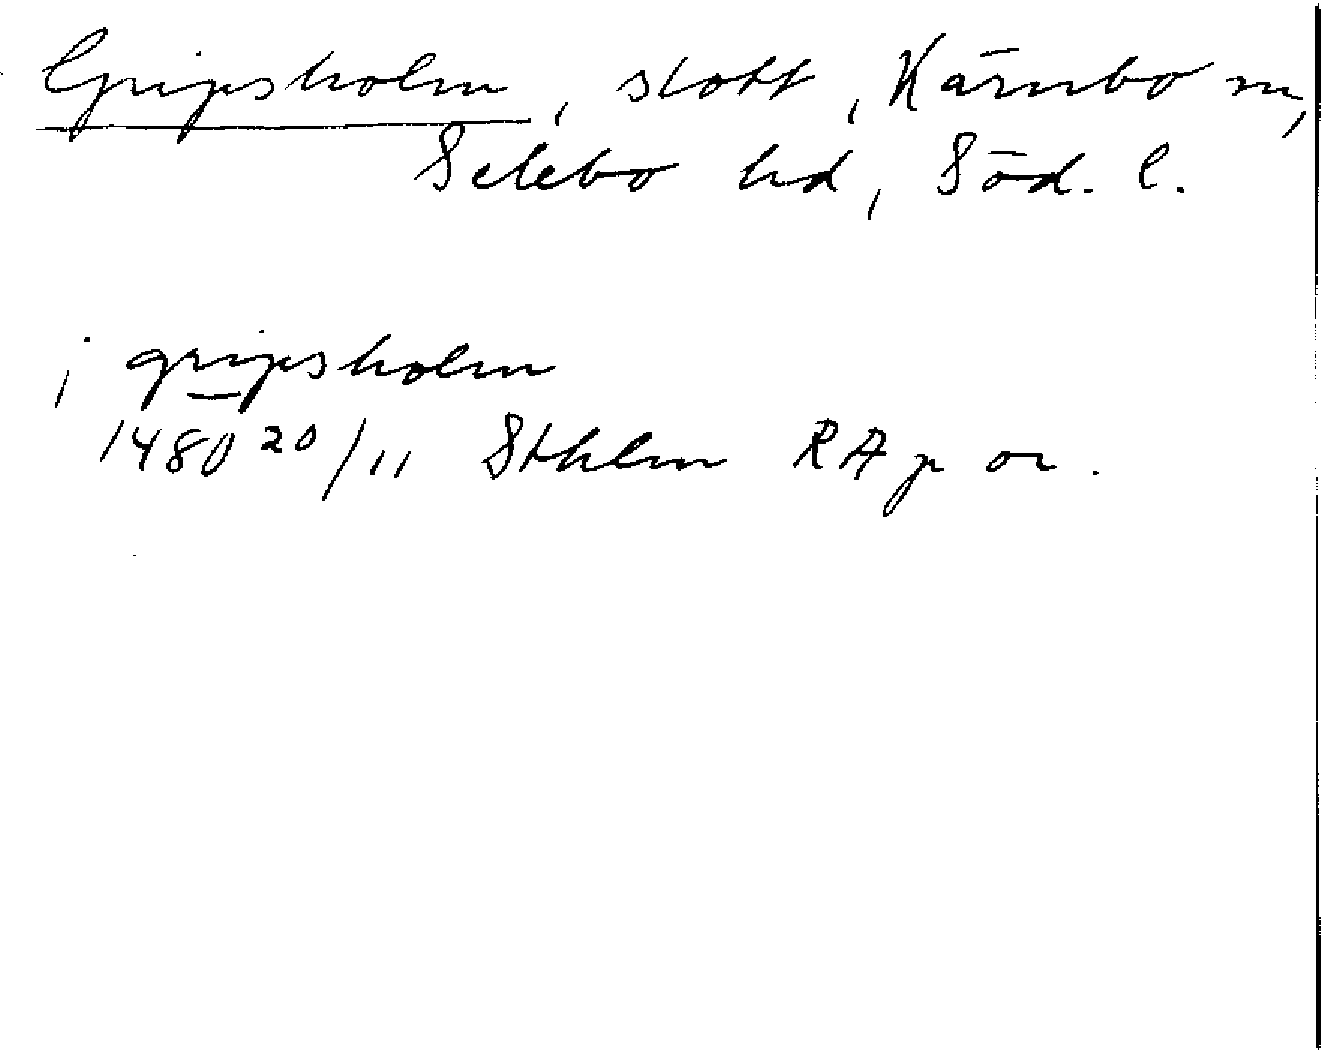 Gripsholm, slott, Kärnbo sn,
Selebo hd, Söd. l.
i gripsholm
1480 20/11 Sthlm RA p or.